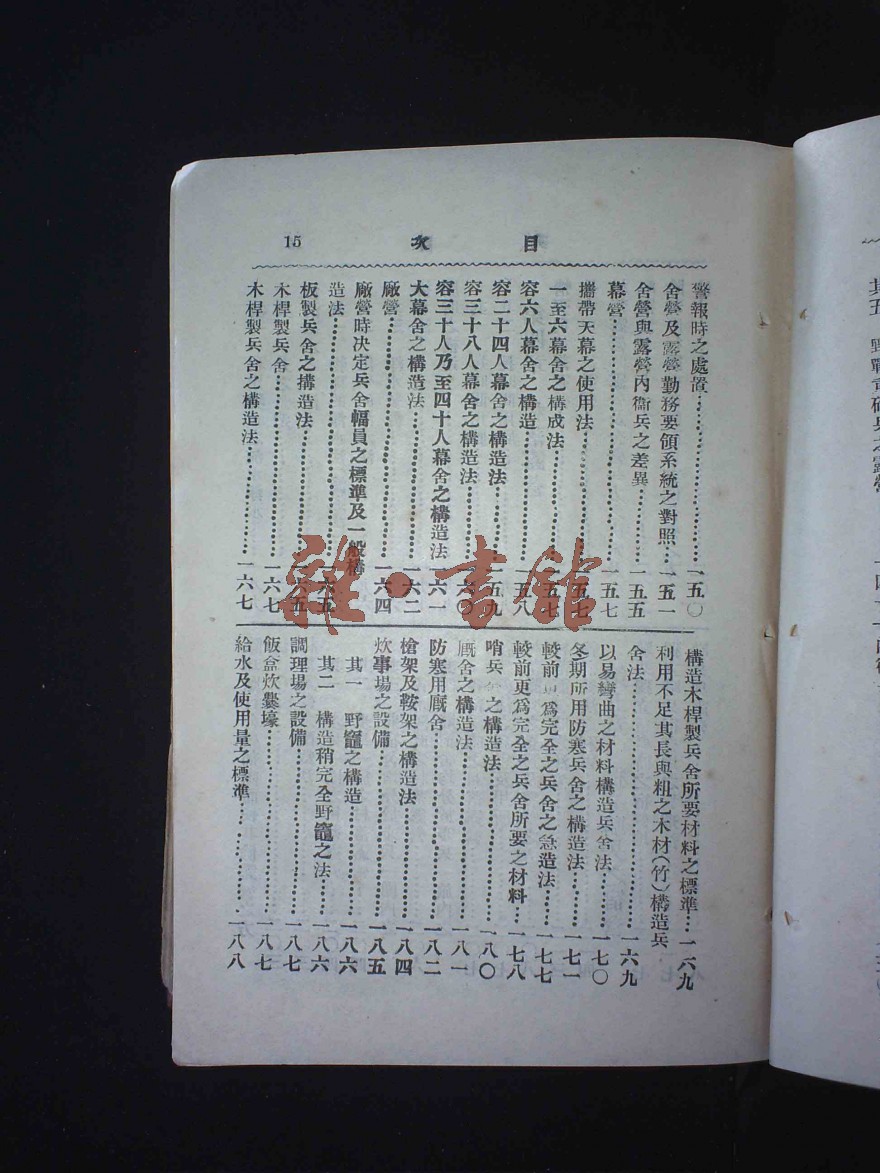 目次 15
警報時之處置……一五〇
舍營及露營勤務要領系統之對照…一五一
舍營與露營內衞兵之差異……一五五
幕營……一五七
攜帶天幕之使用法……一五七
一至六幕舍之構成法……一五七
容六人幕舍之構造……一五八
容二十四人幕舍之構造法……一五九
容三十八人幕舍之構造法……一六〇
容三十人乃至四十人幕舍之構造法……一六一
大幕舍之構造法……一六二
廠營……一六四
廠營時决定兵舍幅員之標準及一般構
造法……一六五
板製兵舍之構造法……一六五
木桿製兵舍……一六七
木桿製兵舍之構造法……一六七
構造木桿製兵舍所要材料之標準…一六九
利用不足其長與粗之木材(竹)構造兵
舍法……一六九
以易彎曲之材料構造兵舍法……一七〇
冬期所用防寒兵舍之構造法……一七一
較前 爲完全之兵舍之急造法……一七七
較前更爲完全之兵舍所要之材料…一七八
哨兵 之構造法……一八〇
廐舍之構造法……一八一
防寒用廐舍……一八二
槍架及鞍架之構造法……一八四
炊事場之設備……一八五
其一 野竈之構造……一八六
其二 構造稍完全野竈之法……一八六
調理場之設備……一八七
飯盒炊爨壕……一八七
給水及使用量之標準……一八八
雜·書館
其五 野戰重砲兵之露營